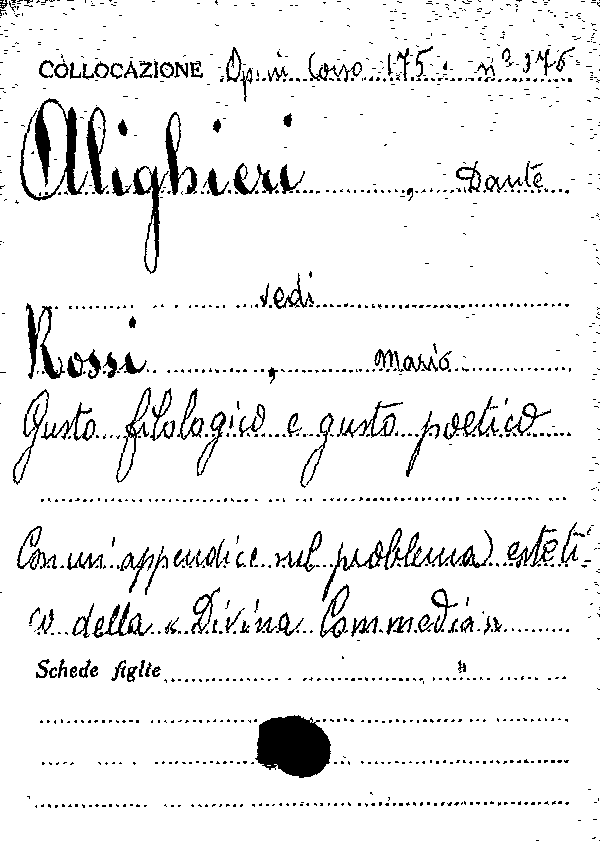 COLLOCAZIONE Op. in Corso 175. nº 176
Alighieri, Dante
vedi
Rossi, Mario
Gusto filologico e gusto poetico
Con un'appendice sul problema esteti-
co della « Divina Commedia »
Schede figlie